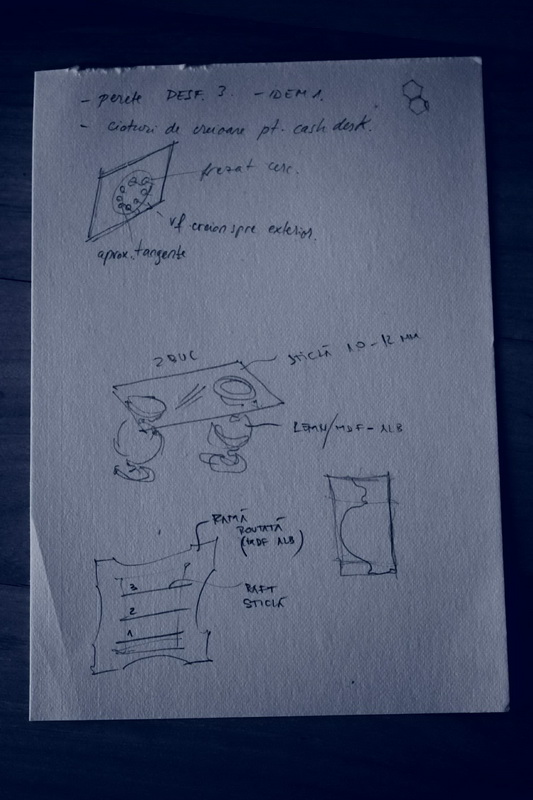 - perete DESF. 3. - IDEM 1.
- cioturi de creioane pt. cash desk.
frezat cerc.
vf creion spre exterior.
aprox. tangente
2 BUC
STICLĂ 10-12 MM
LEMN/MDF - ALB
RAMĂ
(MDF ALB)
RAFT
STICLĂ
3
2
1